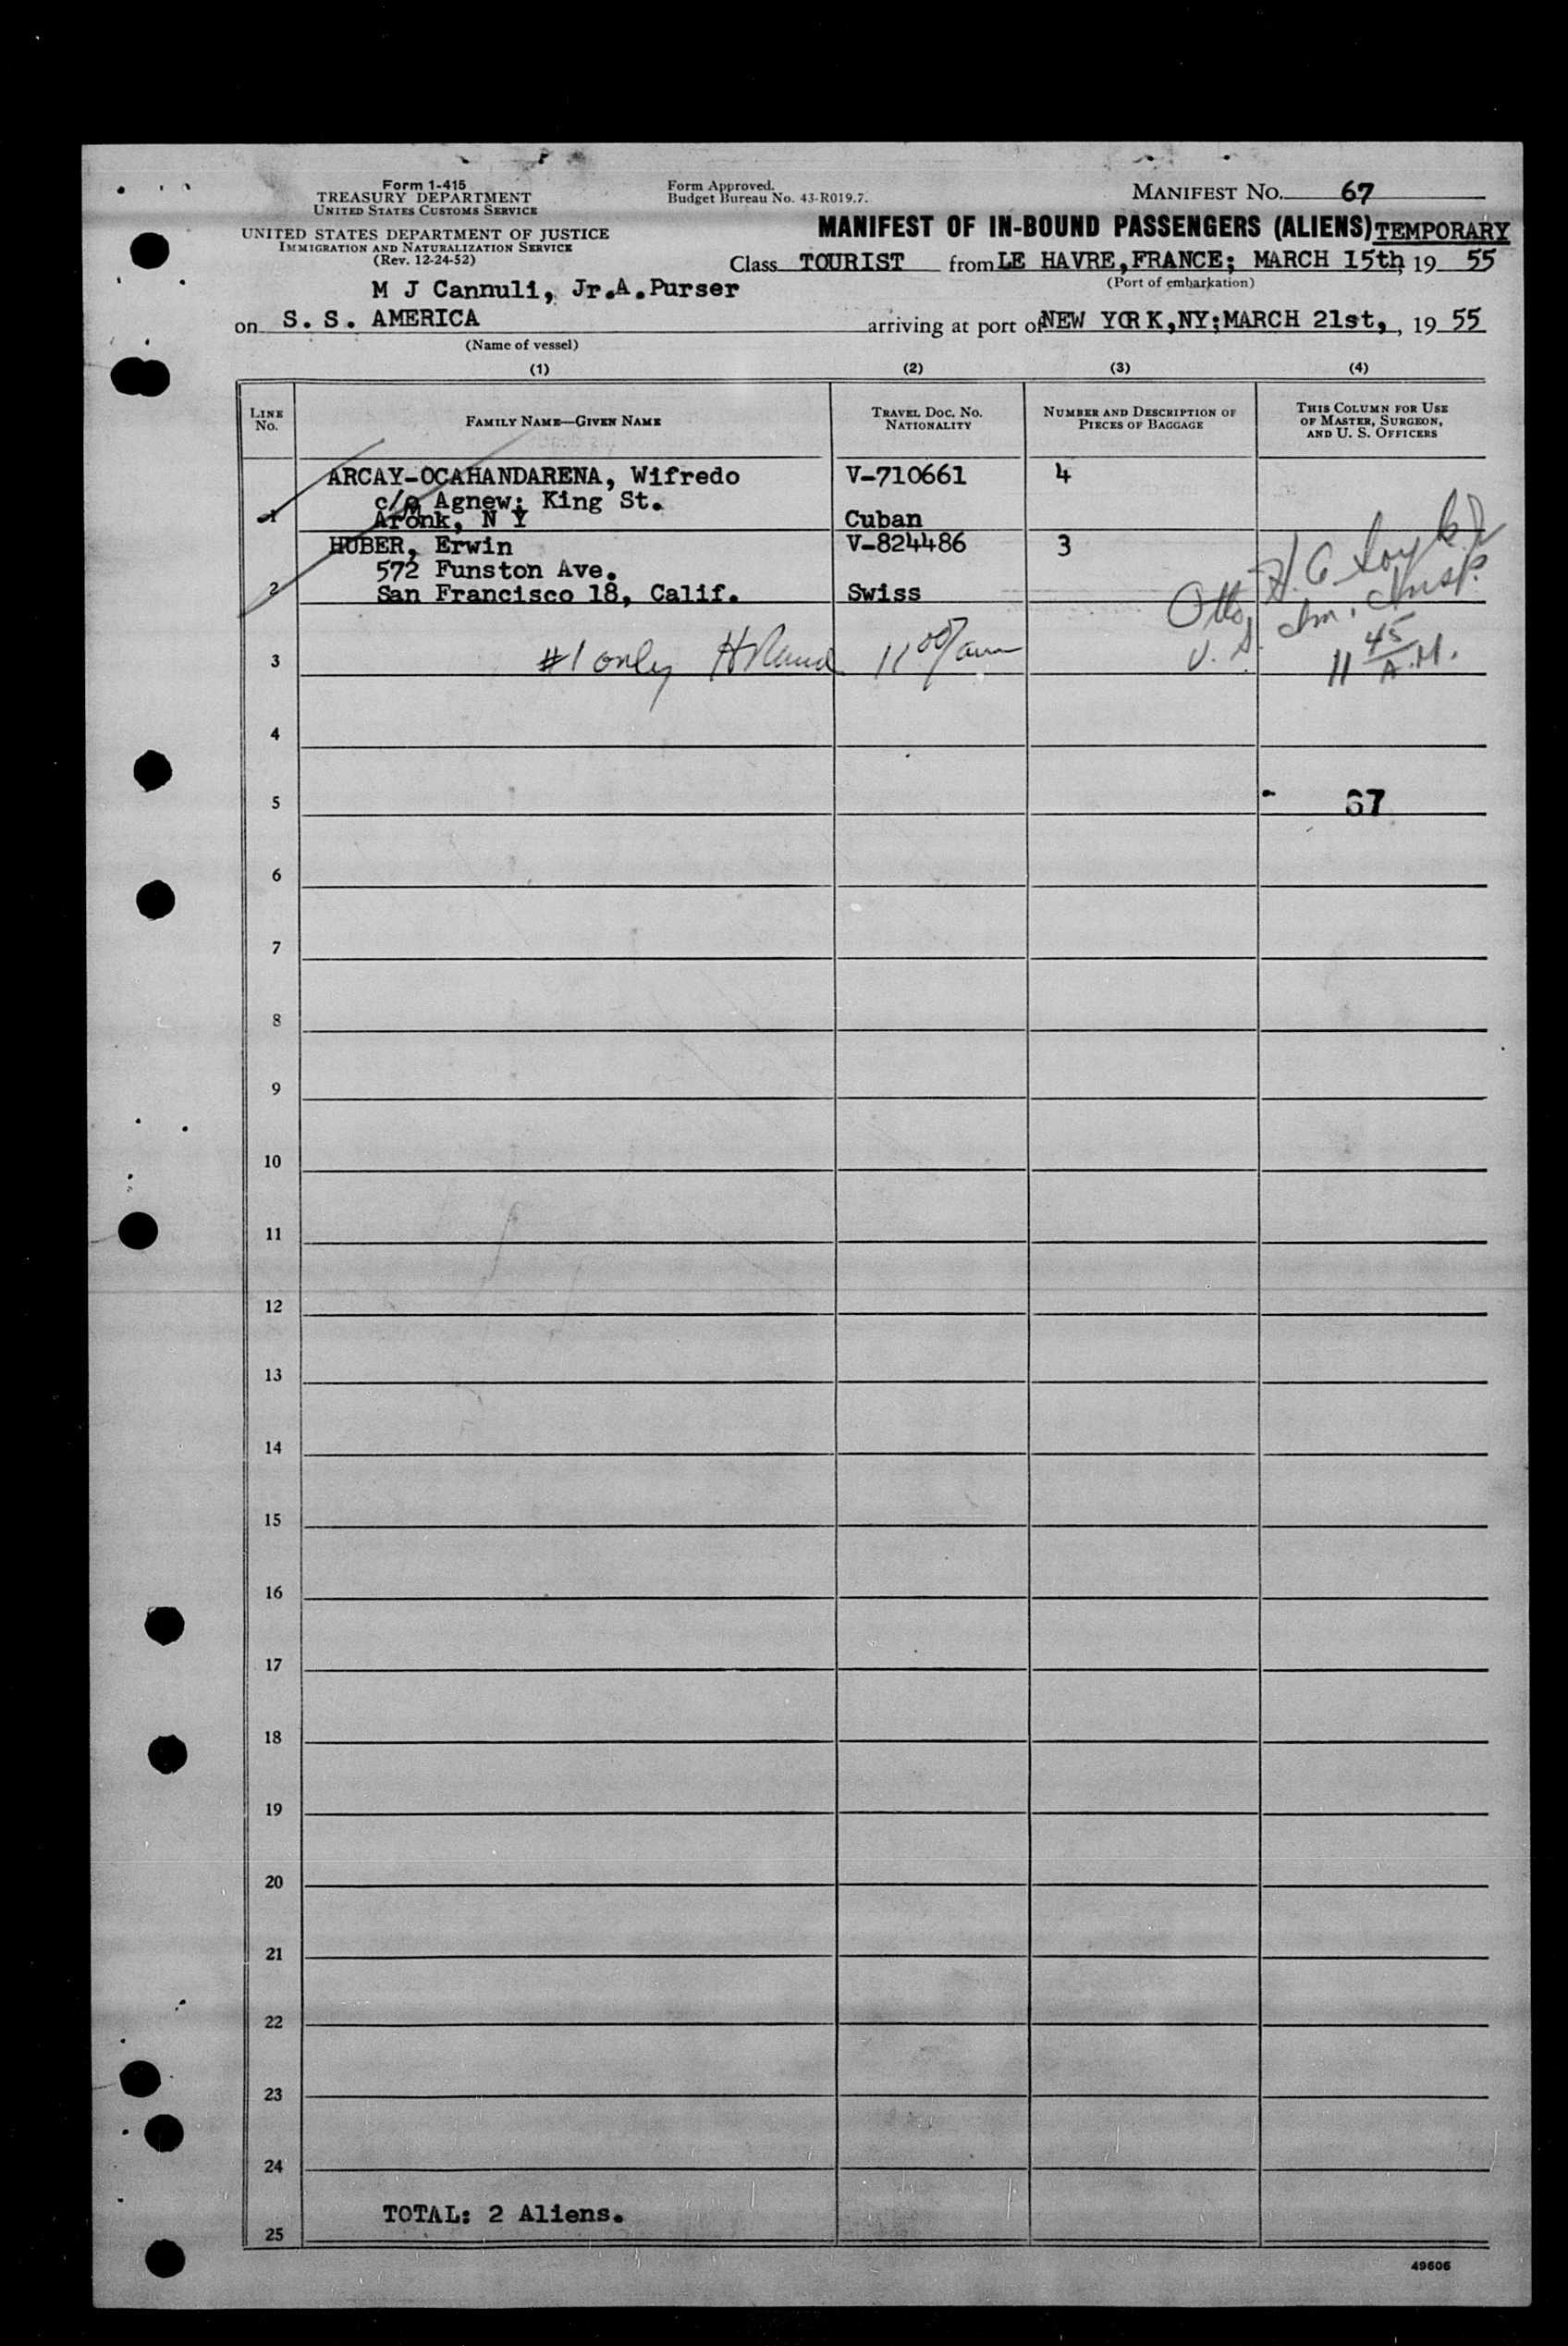 Form 1-415
TREASURY DEPARTMENT
UNITED STATES CUSTOMS SERVICE
UNITED STATES DEPARTMENT OF JUSTICE
IMMIGRATION AND NATURALIZATION SERVICE
(Rev. 12-24-52)
Form Approved.
Budget Bureau No. 43-R019.7.
MANIFEST NO. 67
MANIFEST OF IN-BOUND PASSENGERS (ALIENS) TEMPORARY
Class TOURIST from LE HAVRE, FRANCE; MARCH 15th 19 55
(Port of embarkation)
M J Cannuli, Jr.A.Purser
on S. S. AMERICA arriving at port of NEW YORK,NY;MARCH 21st, , 19 55
(Name of vessel)
(1) (2) (3) (4)
LINE NO. FAMILY NAME—GIVEN NAME TRAVEL DOC. NO. NATIONALITY NUMBER AND DESCRIPTION OF PIECES OF BAGGAGE THIS COLUMN FOR USE OF MASTER, SURGEON, AND U. S. OFFICERS
ARCAY-OCAHANDARENA, Wifredo V-710661 4
c/o Agnew; King St.
1 Aronk, N Y Cuban
HUBER, Erwin V-824486 3
572 Funston Ave.
2 San Francisco 18, Calif. Swiss
Otto
U. S. Im. Insp.
3 #1 only 11 00/am 11 45/A.M.
4
5 67
6
7
8
9
10
11
12
13
14
15
16
17
18
19
20
21
22
23
24
TOTAL: 2 Aliens.
25
49606